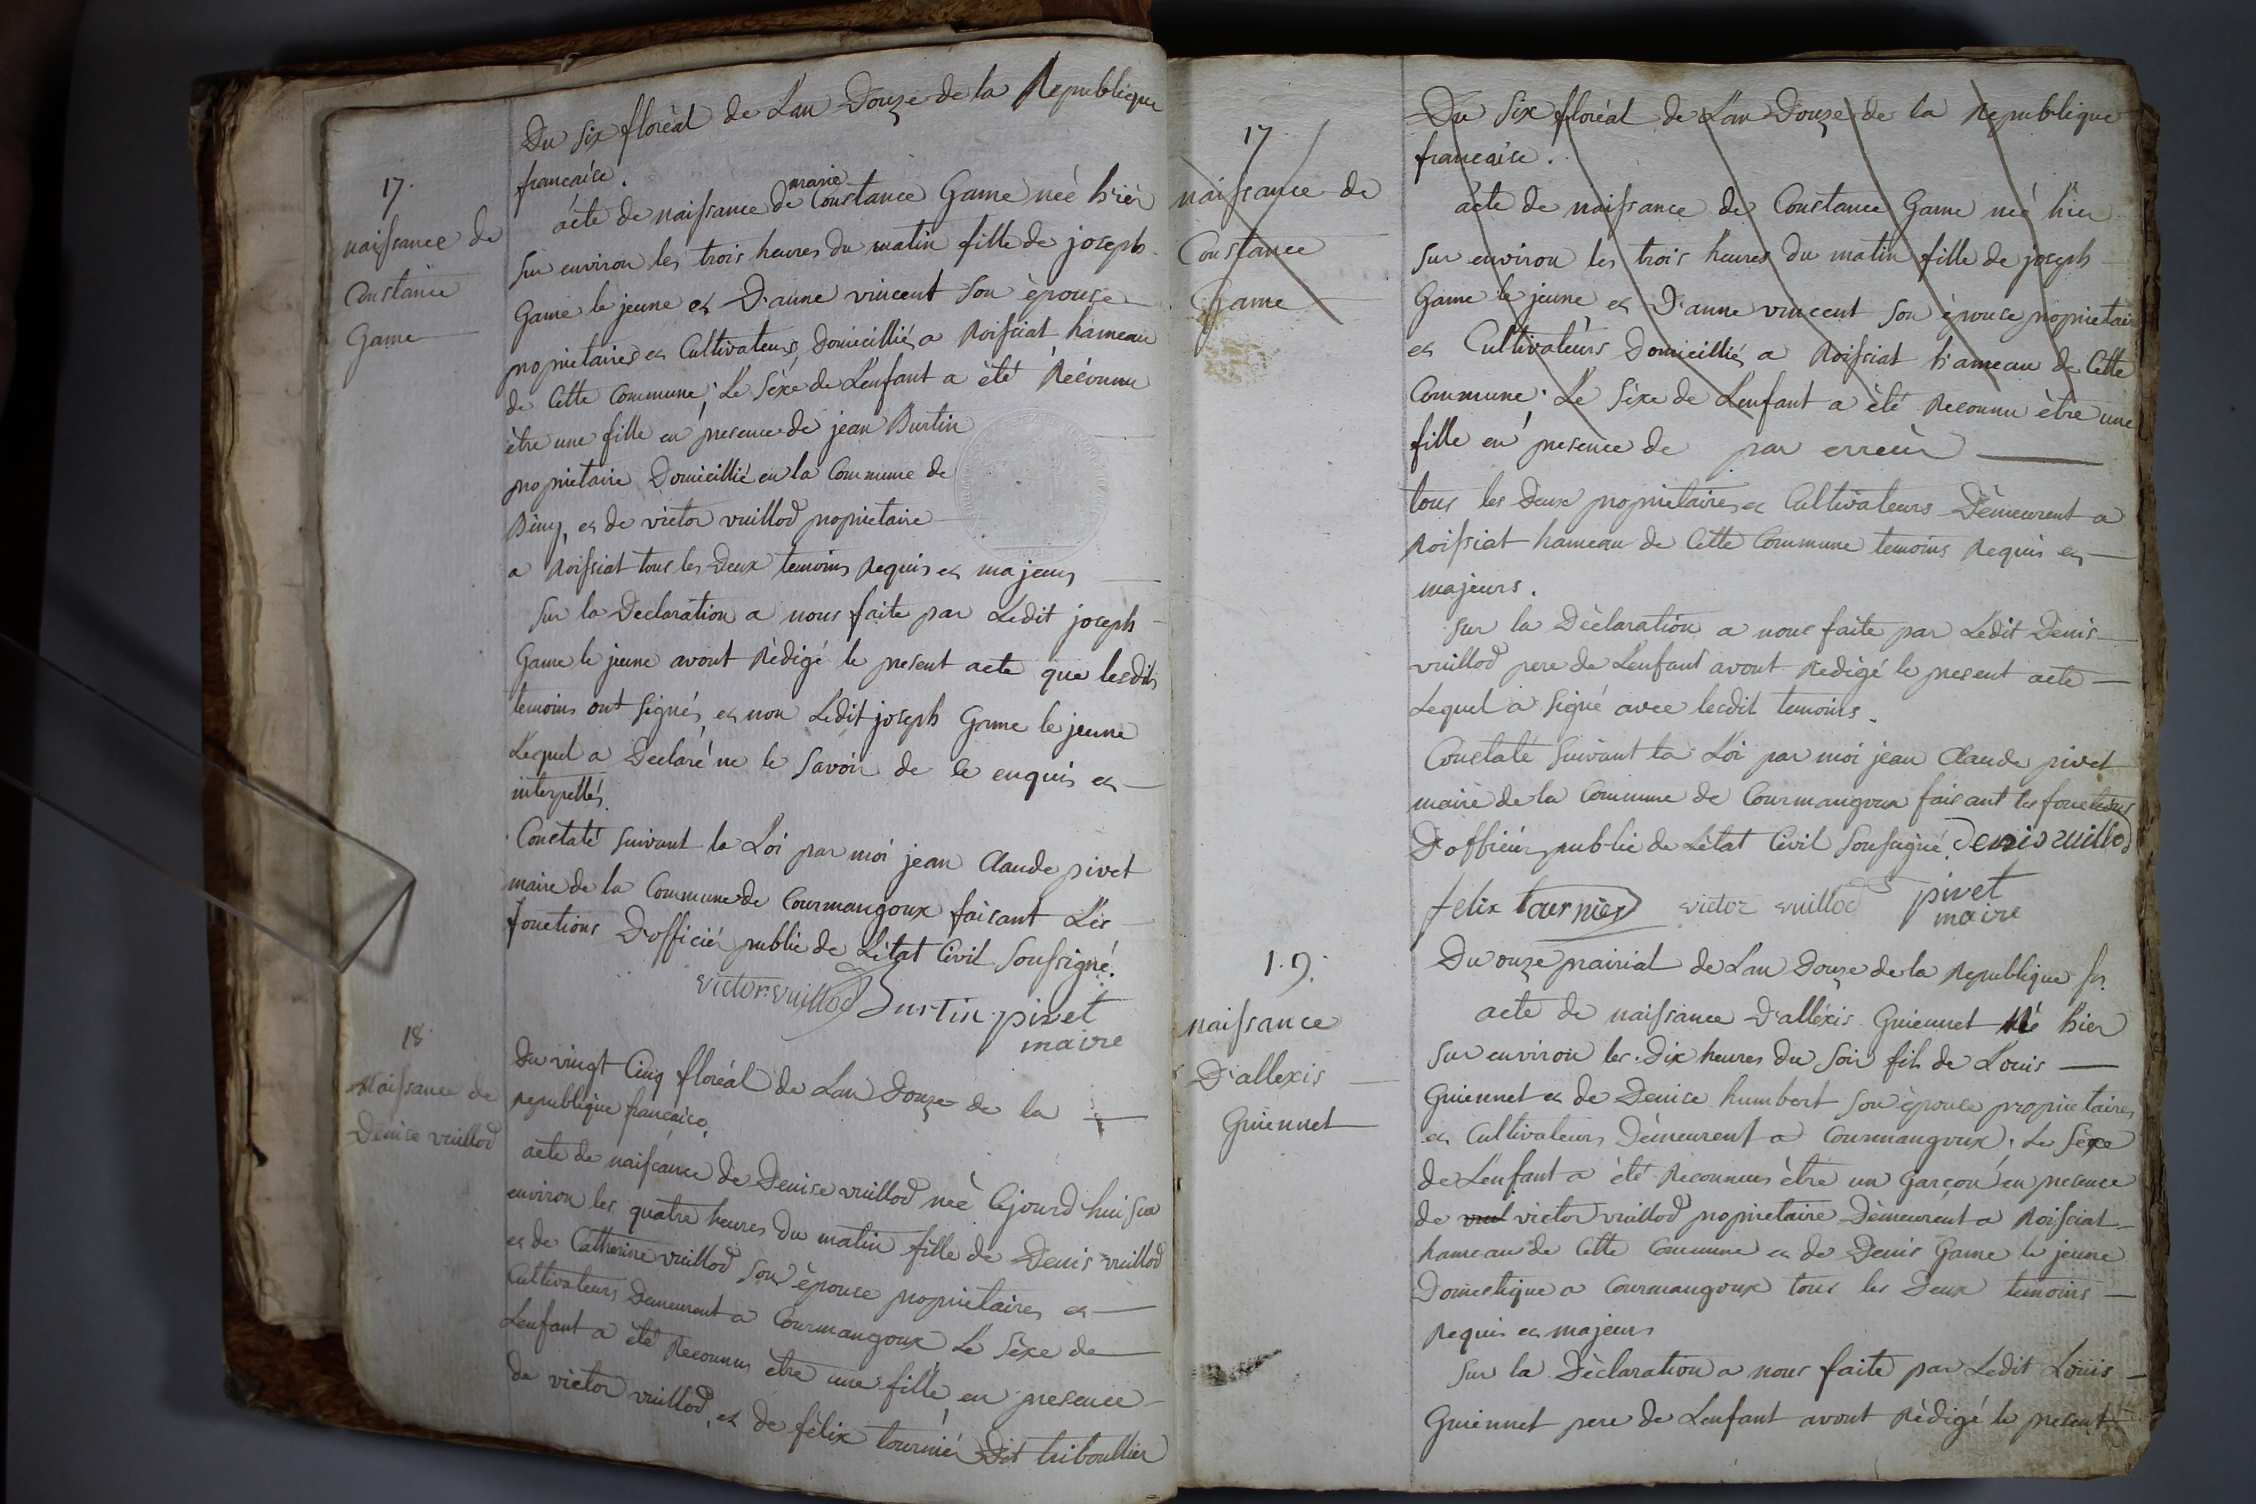 17.
naissance de
Constance
Game
Du six floréal de Lan Douze de la Republique
francaise.
marie
acte de naissance de Constance Game neé hier
sur environ les trois heures du matin fille de joseph
Game le jeune et D'anne vincent son èpouse
propriétaires et Cultivateurs, Domicilliés a Roissiat hameau
de Cette Commune; Le sèxe de Lenfant a été Réconnu
ètre une fille en presence de jean Burtin
proprietaire Domicillié en la Commune de
et de victor vuillod proprietaire
a Roissiat tous les Deux temoins Requis et majeurs
sur la Declaration a nous faite par Ledit joseph
Game le jeune avont Rèdigé le present acte que lesdits
temoins ont signés et non Ledit joseph Game le jeune
Lequel a Declaré ne le savoir de ce enquis et
interpellés.
Constaté suivant la Loi par moi jean Claude pivet
maire de la Commune de Courmangoux faisant Les
fonctions D'officiér public de L'état Civil soussigné.
victor vuillod Burtin pivet
maire
18
Naissance de
Denise vuillod
Du vingt Cinq floréal de Lan Douze de la
republique francaise.
acte de naissance de Denise vuillod neè Cejourd'hui sur
environ les quatre heures du matin fille de Denis vuillod
et de Catherine vuillod son èpouse proprietaires et
Cultivateurs Demeurent a Courmangoux Le sèxe de
Lenfant a èté Reconnus ètre une fille, en presence
de victor vuillod, et de félix tourniér Dit triboullier
17
naissance de
Constance
Game
Du six floréal de L'an Douze de la Republique
francaise.
acte de naissance de Constance Game neé hier
sur environ les trois heures du matin fille de joseph
Game le jeune et D'anne vincent son èpouse proprietaires
et Cultivateurs Domicilliés a Roissiat hameau de Cette
Commune. Le sèxe de Lenfant a èté Reconnu être une
fille en presence de par erreur
tous les Deux proprietaires et Cultivateurs Dèmeurent a
Roissiat hameau de Cette Commune temoins Requis et
majeurs.
sur la Dèclaration a nous faite par Ledit Denis
vuillod pere de Lenfant avont Redigé le present acte
Lequel a signé avec lesdit temoins.
Constaté suivant la Loi par moi jean Claude pivet
maire de la Commune de Courmangoux faisant les fonctions
D'officiér public de Létat Civil soussigné. Denis vuillod
felix tournier victor vuillod pivet
maire
19.
naissance
D'allexis
Guiennet
Du onze prairial de Lan Douze de la Republique fr.
acte de naissance D'alléxis Guiennet Né hier
sur environ les Dix heures du soir fils de Louis
Guiennet et de Denise humbert son èpouse proprietaires
et Cultivateurs Dèmeurent a Courmangoux; Le sèxe
de Lenfant a été Reconnus ètre un Garcon en presence
de vuil victor vuillod proprietaire Dèmeurent a Roissiat
hameau de Cette Commune et de Denis Game le jeune
Domestique a Courmangoux tous les Deux temoins
Requis et majeurs
sur la Dèclaration a nous faite par Ledit Louis
Guiennet pere de Lenfant avont Rèdigé le present